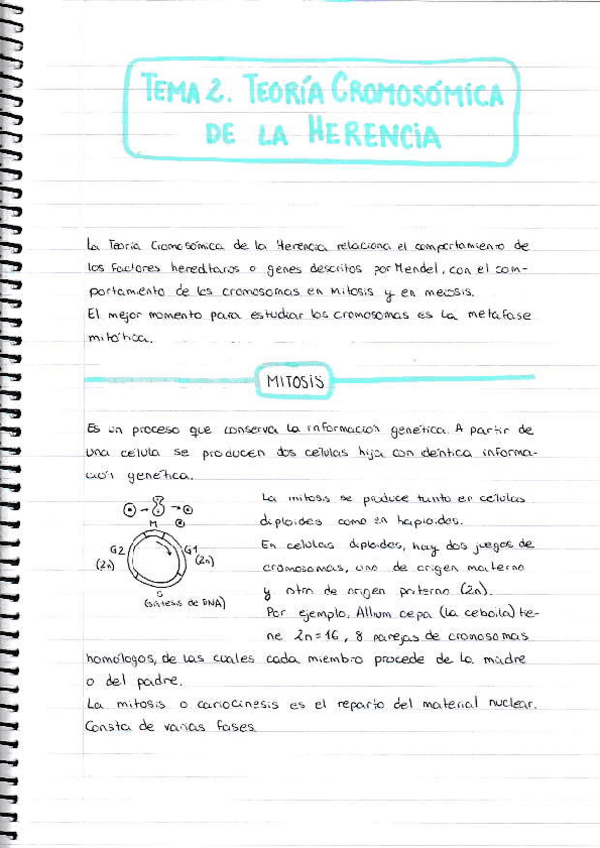 TEMA 2. TEORÍA CROMOSÓMICA
DE LA HERENCIA
La Teoría Cromosómica de la Herencia relaciona el comportamiento de
los factores hereditarios o genes descritos por Mendel, con el com-
portamiento de los cromosomas en mitosis y en meiosis.
El mejor momento para estudiar los cromosomas es la metafase
mitótica.
MITOSIS
Es un proceso que conserva la información genética. A partir de
una célula se producen dos células hija con idéntica informa-
ción genética.
La mitosis se produce tanto en células
diploides como en haploides.
En células diploides, hay dos juegos de
cromosomas, uno de origen materno
y otro de origen paterno (2n).
Por ejemplo, Allium cepa (la cebolla) tie-
ne 2n=16, 8 parejas de cromosomas
M
G2
(2n)
G1
(2n)
S
(síntesis de DNA)
homólogos, de las cuales cada miembro procede de la madre
o del padre.
La mitosis o cariocinesis es el reparto del material nuclear.
Consta de varias fases.